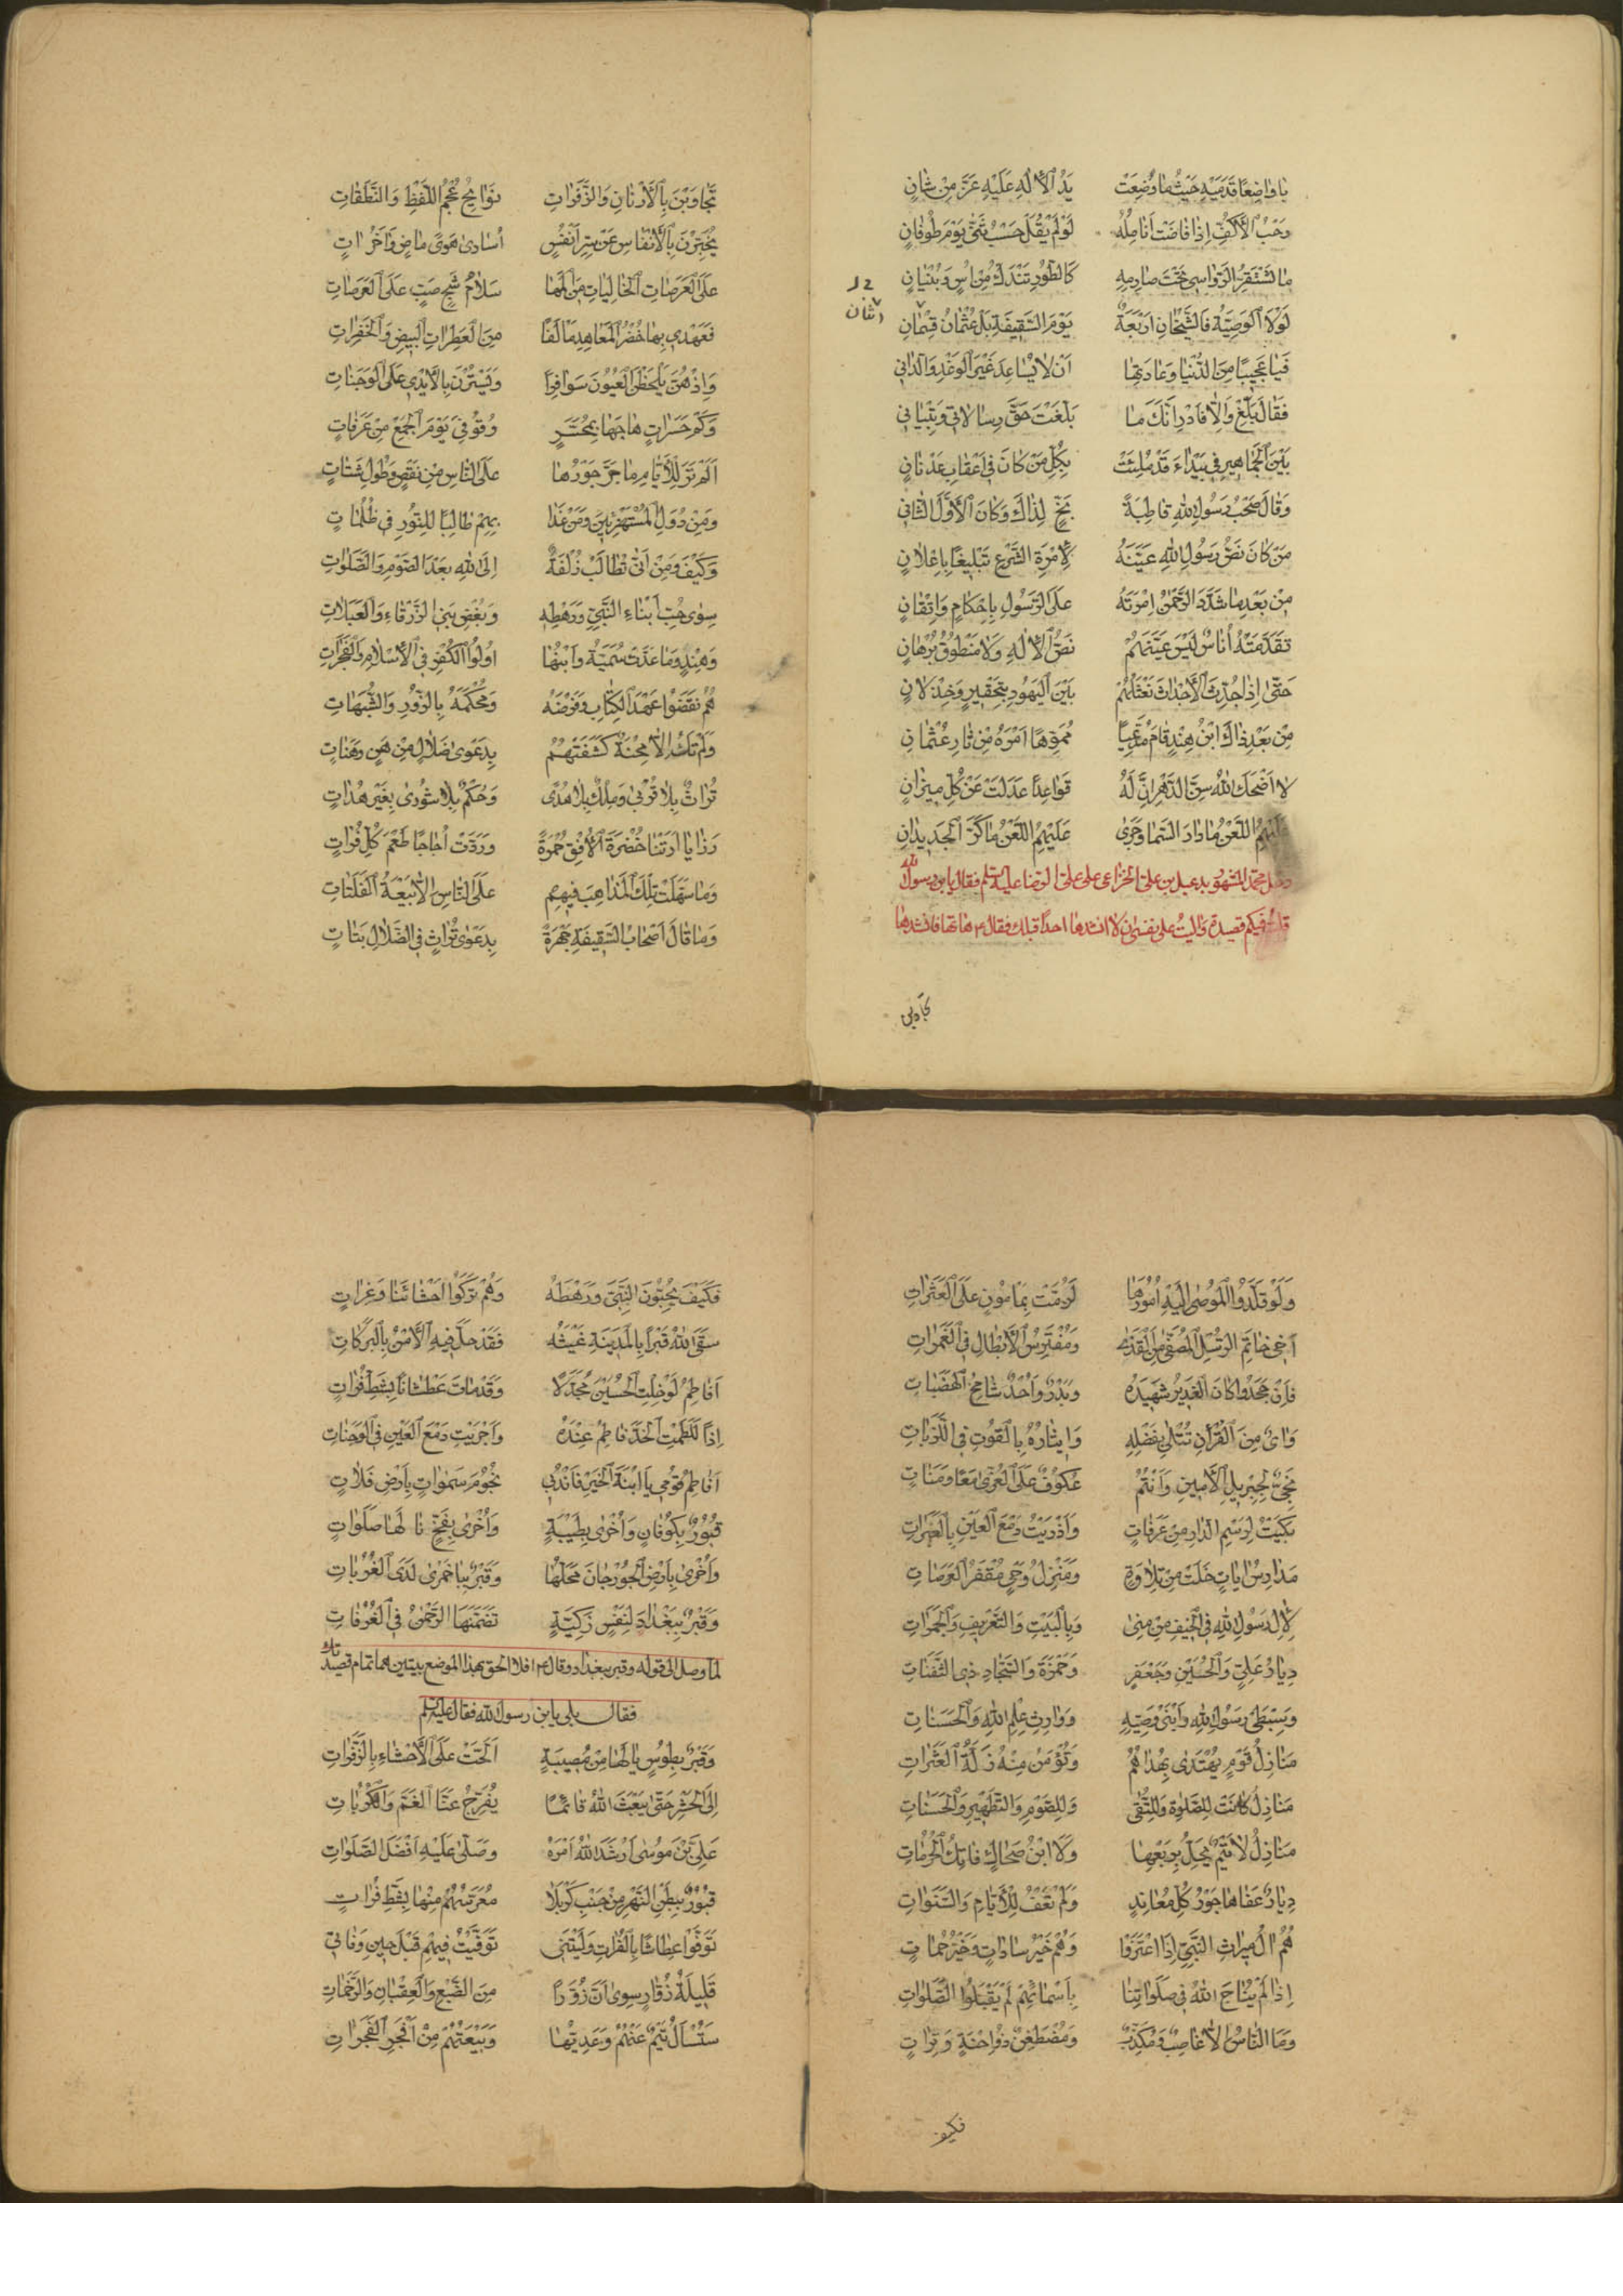 يا واضعًا قدميه حيثما وضعت يد الاله عليه عز من شان
رحب الاكف اذا فاضت انامله لو لم يقل حسب ثنى يوم طوفان
ما تستقر الرواسى تحت صارمه كالطور تندك من اس وبنيان
لولا الوصية فالشيخان اربعة يوم السقيفة بل عثمان قيمان
اثنان
فيا عجيبًا من الدنيا وعادتها ان لا يساعد غير الوغد والدانى
فقال بلغ والا فادر انك ما بلغت حق رسالاتى وتبيانى
بين الجماهير فى بيداء قد ملئت بكل من كان فى اعقاب عدنان
وقال صحب رسول الله قاطبة بخ لذاك وكان الاول الثانى
من كان نص رسول الله عينه لامرة الشرع تبليغا باعلان
من بعد ما شدد الرحمن امرته على الرسول باحكام واتقان
تقدمته اناس ليس عينهم نص الاله ولا منطوق برهان
حتى اذا جدت الاجداث نعثلهم بين اليهود بتحقير وخذلان
من بعد ذاك ابن هند قام مدعيا مموها امره من ثار عثمان
لا اضحك الله سن الدهر ان له قواعدًا عدلت عن كل ميزان
عليهم اللعن ما دار السما وجرى عليهم اللعن ما كر الجديدان
دخل محمد المشهور بدعبل بن على الخزاعى على على الرضا عليه السلم فقال يا بن رسول الله
قلت فيكم قصيدة واليت على نفسى ان لا انشدها احدا قبلك فقال ع هاتها فانشدها
تجاوبن
تجاوبن بالارنان والزفرات نوايح عجم اللفظ والنطقات
يخبرن بالانفاس عن سر انفس اسارى هوى ماض واخر ات
على العرصات الخاليات من المها سلام شج صب على العرصات
فعهدى بها خضر المعاهد مالفا من العطرات البيض والخفرات
واذ هن يلحظن العيون سوافرا ويسترن بالايدى على الوجنات
وكم حسرات هاجها بمحسر وقوفى يوم الجمع من عرفات
الم تر للايام ما جر جورها على الناس من نقص وطول شتات
ومن دول المستهزئين ومن غدا بهم طالبا للنور فى ظلمات
وكيف ومن انى تطالب زلفة الى الله بعد الصوم والصلوات
سوى حب ابناء النبى ورهطه وبغض بنى الزرقاء والعبلات
وهند وما عدت سمية وابنها اولوا الكفر فى الاسلام والفجرات
هم نقضوا عهد الكتاب وفرضه ومحكمه بالزور والشبهات
ولم تك الا محنة كشفتهم بدعوى ضلال من هن وهنات
تراث بلا قربى وملك بلا هدى وحكم بلا شورى بغير هدات
رزايا ارتنا خضرة الافق حمرة وردت اجاجا طعم كل فرات
وما سهلت تلك المذاهب فيهم على الناس الا بيعة الفلتات
وما قال اصحاب السقيفة جهرة بدعوى تراث فى الضلال بتات
ولو قلدوا الموصى اليه امورها لزمت بمامون على العثرات
اخى خاتم الرسل المصفى من القذى ومفترس الابطال فى الغمرات
فان جحدوا كان الغدير شهيده وبدر واحد شامخ الهضبات
واى من القران تتلى بفضله وايثاره بالقوت فى اللزبات
نجى لجبريل الامين وانتم عكوف على العزى معا ومنات
بكيت لرسم الدار من عرفات واذريت دمع العين بالعبرات
مدارس ايات خلت من تلاوة ومنزل وحى مقفر العرصات
لال رسول الله فى الخيف من منى وبالبيت والتعريف والجمرات
ديار على والحسين وجعفر وحمزة والسجاد ذى الثفنات
وسبطى رسول الله وابنى وصيه ووارث علم الله والحسنات
منازل قوم يهتدى بهداهم وتؤمن منه زلة العثرات
منازل كانت للصلوة وللتقى وللصوم والتطهير والحسنات
منازل لا تيم يحل بربعها ولا ابن ضحاك فاتك الحرمات
ديار عفاها جور كل معاند ولم تعف للايام والسنوات
هم ال ميراث النبى اذا اعتزوا وهم خير سادات وخير حمات
اذا لم يناج الله فى صلواتنا باسمائهم لم يقبلوا الصلوات
وما الناس الا غاصب ومكذب ومضطغن ذو احنة وترات
فكيف
فكيف يحبون النبى ورهطه وهم تركوا احشائنا وغرات
سقى الله قبرا بالمدينة غيثه فقد حل فيه الامن بالبركات
افاطم لو خلت الحسين مجدلا وقد مات عطشانا بشط فرات
اذا للطمت الخد فاطم عنده واجريت دمع العين فى الوجنات
افاطم قومى يا ابنة الخير فاندبى نجوم سموات بارض فلات
قبور بكوفان واخرى بطيبة واخرى بفخ نالها صلوات
واخرى بارض الجوزجان محلها وقبر بباخمرى لدى الغربات
وقبر ببغداد لنفس زكية تضمنها الرحمن فى الغرفات
لما وصل الى قوله وقبر ببغداد وقال ع افلا الحق بهذا الموضع بيتين بهما تمام قصيدتك
فقال بلى يا بن رسول الله فقال عليه السلم
وقبر بطوس يا لها من مصيبة الحت على الاحشاء بالزفرات
الى الحشر حتى يبعث الله قائما يفرج عنا الغم والكربات
على بن موسى ارشد الله امره وصلى عليه افضل الصلوات
قبور ببطن النهر من جنب كربلا معرسهم منها بشط فرات
توفوا عطاشا بالفرات وليتنى توفيت فيهم قبل حين وفاتى
قليلة زوار سوى ان زورا من الضبع والعقبان والرخمات
ستسال تيم عنهم وعديها وبيعتهم من افجر الفجرات